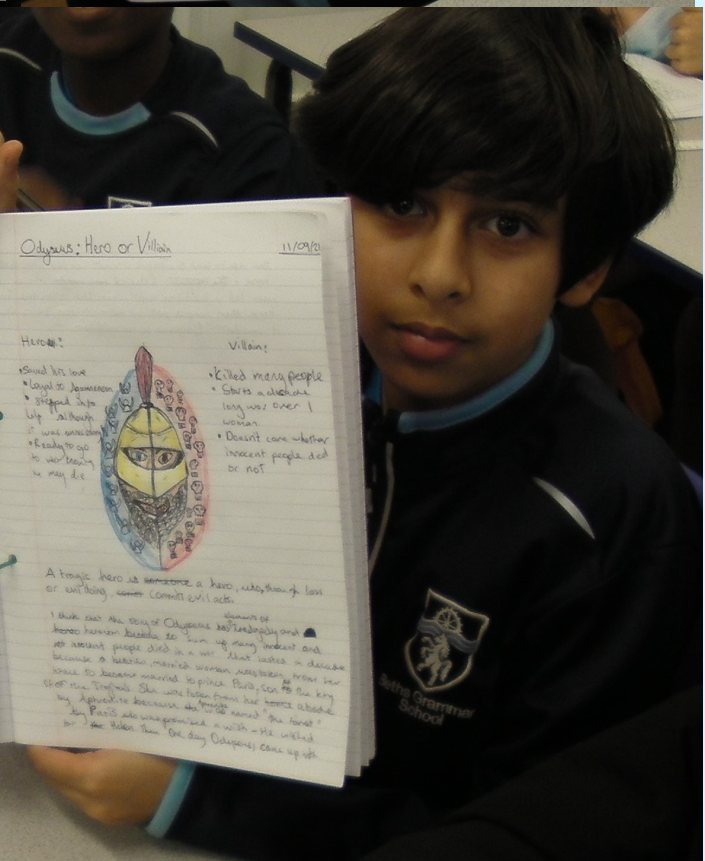 Odyseus: Hero or Villain
11/09/21
Hero:
• Saved his love
• Loyal to
• stepped into
help although
it was
• Ready to go
to war
he may die
Villain:
• Killed many people
• Starts a
long war over 1
woman.
• Doesn't care whether
innocent people died
or not
A tragic hero is a hero, who, through love
or evil doing, commits evil acts.
I think that the story of Odyseus has elements of tradgedy and
heroism to sum up many innocent and
people died in a war that lasted a decade
because a married woman was taken from her
to become married to prince Paris, son to the king
of the Trojans. She was taken from her abode
by Aphrodite because she was named "the fairest"
by Paris who was promised a wish - He wished
for Helen. Then One day Odyseus came up with
Beths Grammar
School